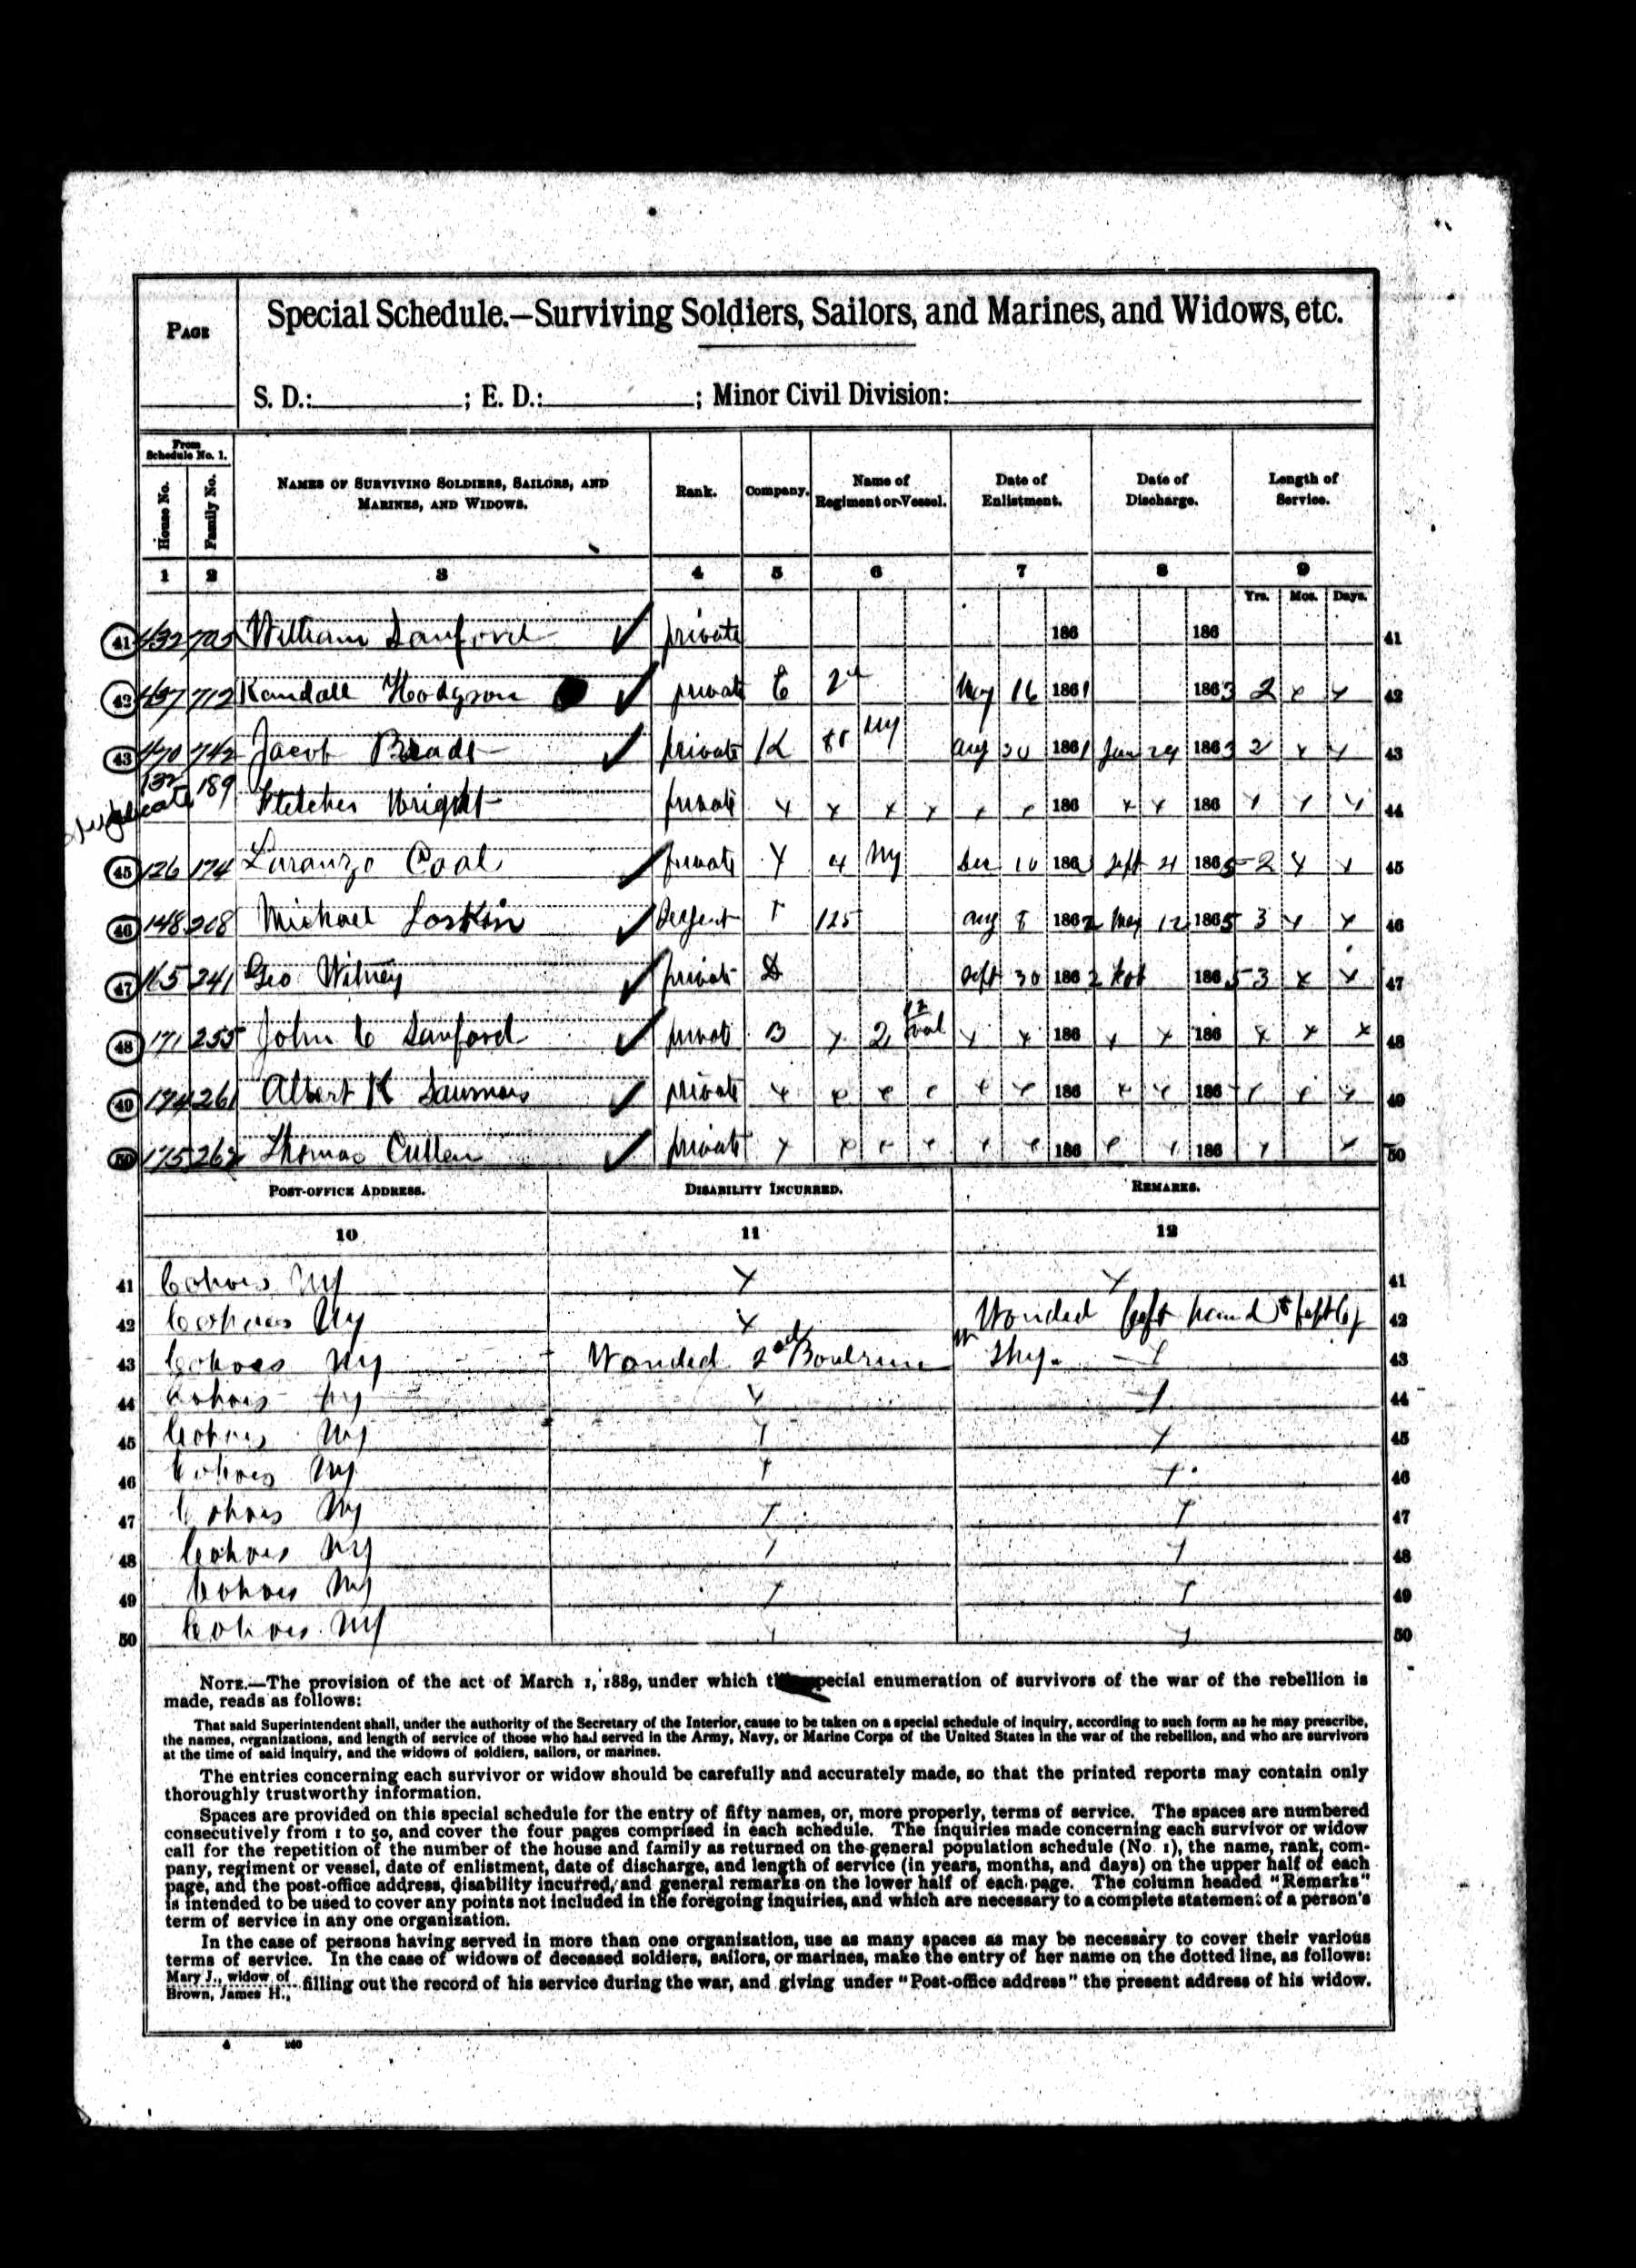 PAGE
Special Schedule.—Surviving Soldiers, Sailors, and Marines, and Widows, etc.
S. D.: ; E. D.: ; Minor Civil Division:
From Schedule No. 1.
House No. Family No. NAMES OF SURVIVING SOLDIERS, SAILORS, AND MARINES, AND WIDOWS. Rank. Company. Name of Regiment or Vessel. Date of Enlistment. Date of Discharge. Length of Service.
1 2 3 4 5 6 7 8 9
Yrs. Mos. Days.
41 William Sanford private 186 186 41
42 712 Randall Hodgson private E 2d May 16 1861 1863 2 x x 42
43 742 Jacob private K 88 NY Aug 1861 Jan 29 1863 2 x x 43
132 189 Fletcher Wright private x x x x x x 186 x x 186 x x x 44
Duplicate
45 126 174 Loranzo Coal private Y 4 NY Dec 10 186 Sept 21 1865 2 x x 45
46 148 208 Michael 125 Aug 8 1862 May 12 1865 3 x x 46
47 165 241 Geo Witney private D Sept 30 1862 1865 3 x x 47
48 171 255 John C Sanford private B x 2 x x 186 x x 186 x x x 48
49 174 261 Albert K private x x x x x x 186 x x 186 x x x 49
50 175 262 Thomas Cullen private x x x x x x 186 x x 186 x x 50
POST-OFFICE ADDRESS. DISABILITY INCURRED. REMARKS.
10 11 12
41 Cohoes NY x x 41
42 Cohoes NY x Wonded left hand & left leg 42
43 Cohoes NY Wonded 2nd Boulrun in thy. x 43
44 Cohoes NY x x 44
45 Cohoes NY x x 45
46 Cohoes NY x x 46
47 Cohoes NY x x 47
48 Cohoes NY x x 48
49 Cohoes NY x x 49
50 Cohoes NY x x 50
NOTE.—The provision of the act of March 1, 1889, under which this special enumeration of survivors of the war of the rebellion is
made, reads as follows:
That said Superintendent shall, under the authority of the Secretary of the Interior, cause to be taken on a special schedule of inquiry, according to such form as he may prescribe,
the names, organizations, and length of service of those who had served in the Army, Navy, or Marine Corps of the United States in the war of the rebellion, and who are survivors
at the time of said inquiry, and the widows of soldiers, sailors, or marines.
The entries concerning each survivor or widow should be carefully and accurately made, so that the printed reports may contain only
thoroughly trustworthy information.
Spaces are provided on this special schedule for the entry of fifty names, or, more properly, terms of service. The spaces are numbered
consecutively from 1 to 50, and cover the four pages comprised in each schedule. The inquiries made concerning each survivor or widow
call for the repetition of the number of the house and family as returned on the general population schedule (No. 1), the name, rank, com-
pany, regiment or vessel, date of enlistment, date of discharge, and length of service (in years, months, and days) on the upper half of each
page, and the post-office address, disability incurred, and general remarks on the lower half of each page. The column headed "Remarks"
is intended to be used to cover any points not included in the foregoing inquiries, and which are necessary to a complete statement of a person's
term of service in any one organization.
In the case of persons having served in more than one organization, use as many spaces as may be necessary to cover their various
terms of service. In the case of widows of deceased soldiers, sailors, or marines, make the entry of her name on the dotted line, as follows:
Mary J., widow of
Brown, James H., filling out the record of his service during the war, and giving under "Post-office address" the present address of his widow.